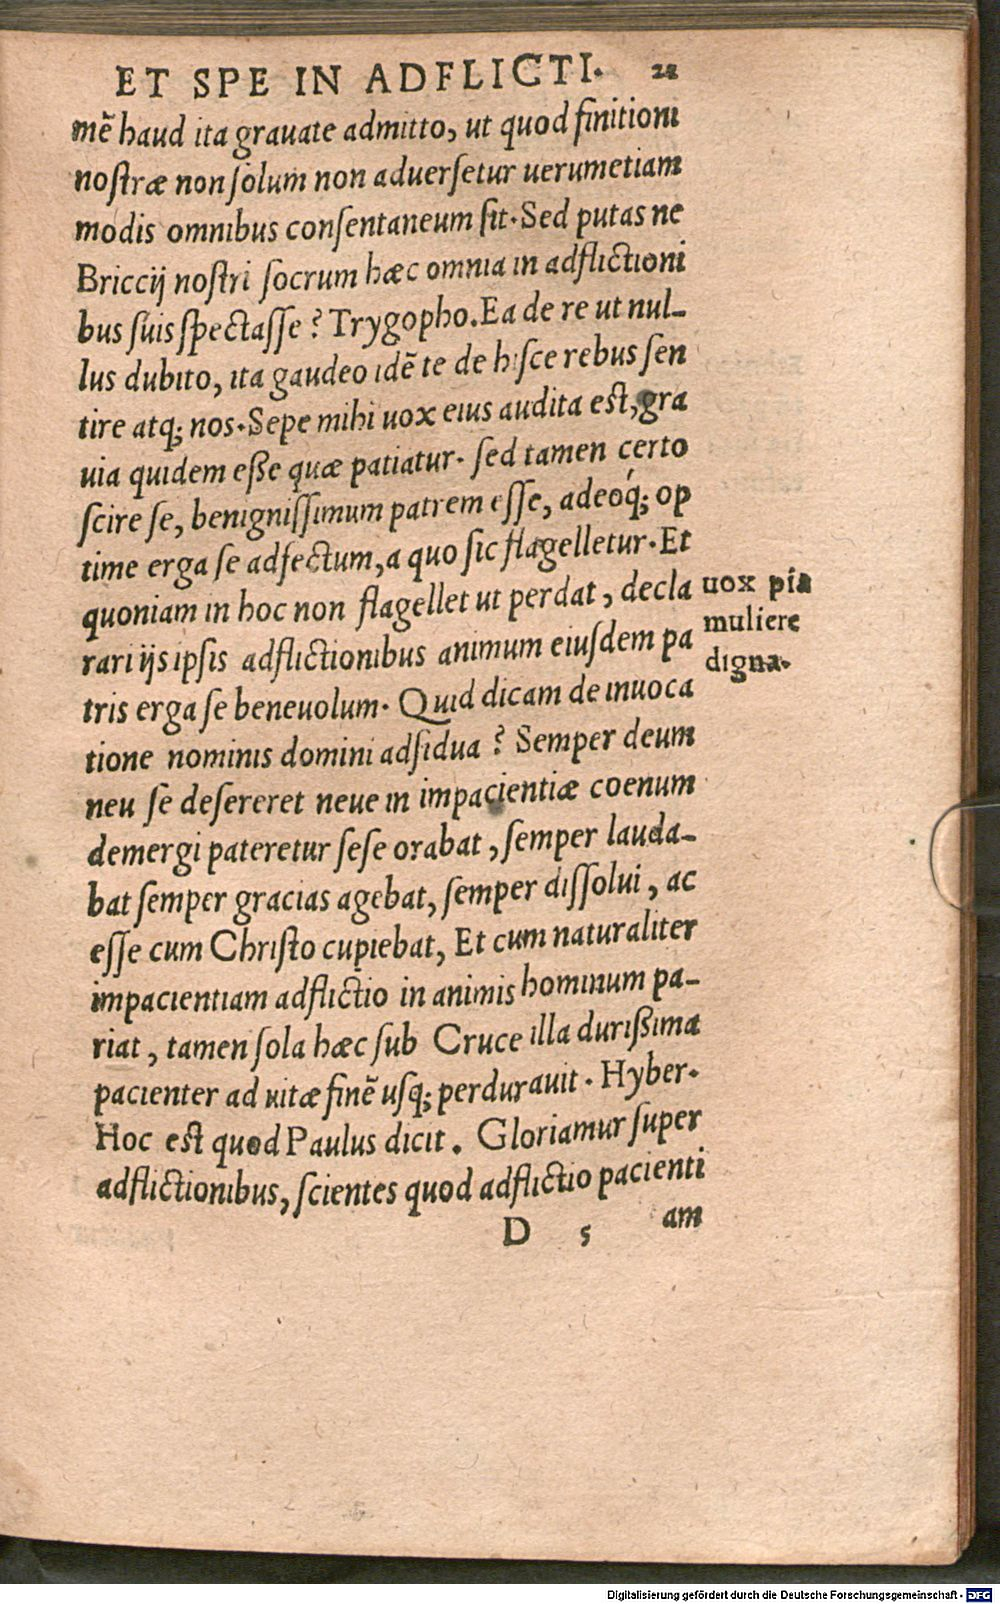 ET SPE IN ADFLICTI. 28
mē haud ita grauate admitto, ut quod finitioni
nostræ non solum non aduersetur uerumetiam
modis omnibus consentaneum sit. Sed putas ne
Briccij nostri socrum hæc omnia in adflictioni
bus suis spectasse? Trygopho. Ea de re ut nul-
lus dubito, ita gaudeo idē te de hisce rebus sen
tire atq; nos. Sepe mihi uox eius audita est, gra
uia quidem eße quæ patiatur. sed tamen certo
scire se, benignissimum patrem esse, adeoq́; op
time erga se adfectum, a quo sic flagelletur. Et
quoniam in hoc non flagellet ut perdat, decla
rari ijs ipsis adflictionibus animum eiusdem pa
tris erga se beneuolum. Quid dicam de inuoca
tione nominis domini adsidua? Semper deum
neu se desereret neue in impacientiæ coenum
demergi pateretur sese orabat, semper lauda-
bat semper gracias agebat, semper dissolui, ac
esse cum Christo cupiebat, Et cum naturaliter
impacientiam adflictio in animis hominum pa-
riat, tamen sola hæc sub Cruce illa durißima
pacienter ad uitæ finē usq; perdurauit. Hyber.
Hoc est quod Paulus dicit. Gloriamur super
adflictionibus, scientes quod adflictio pacienti
D 5 am
uox pia
muliere
digna.
Digitalisierung gefördert durch die Deutsche Forschungsgemeinschaft - DFG